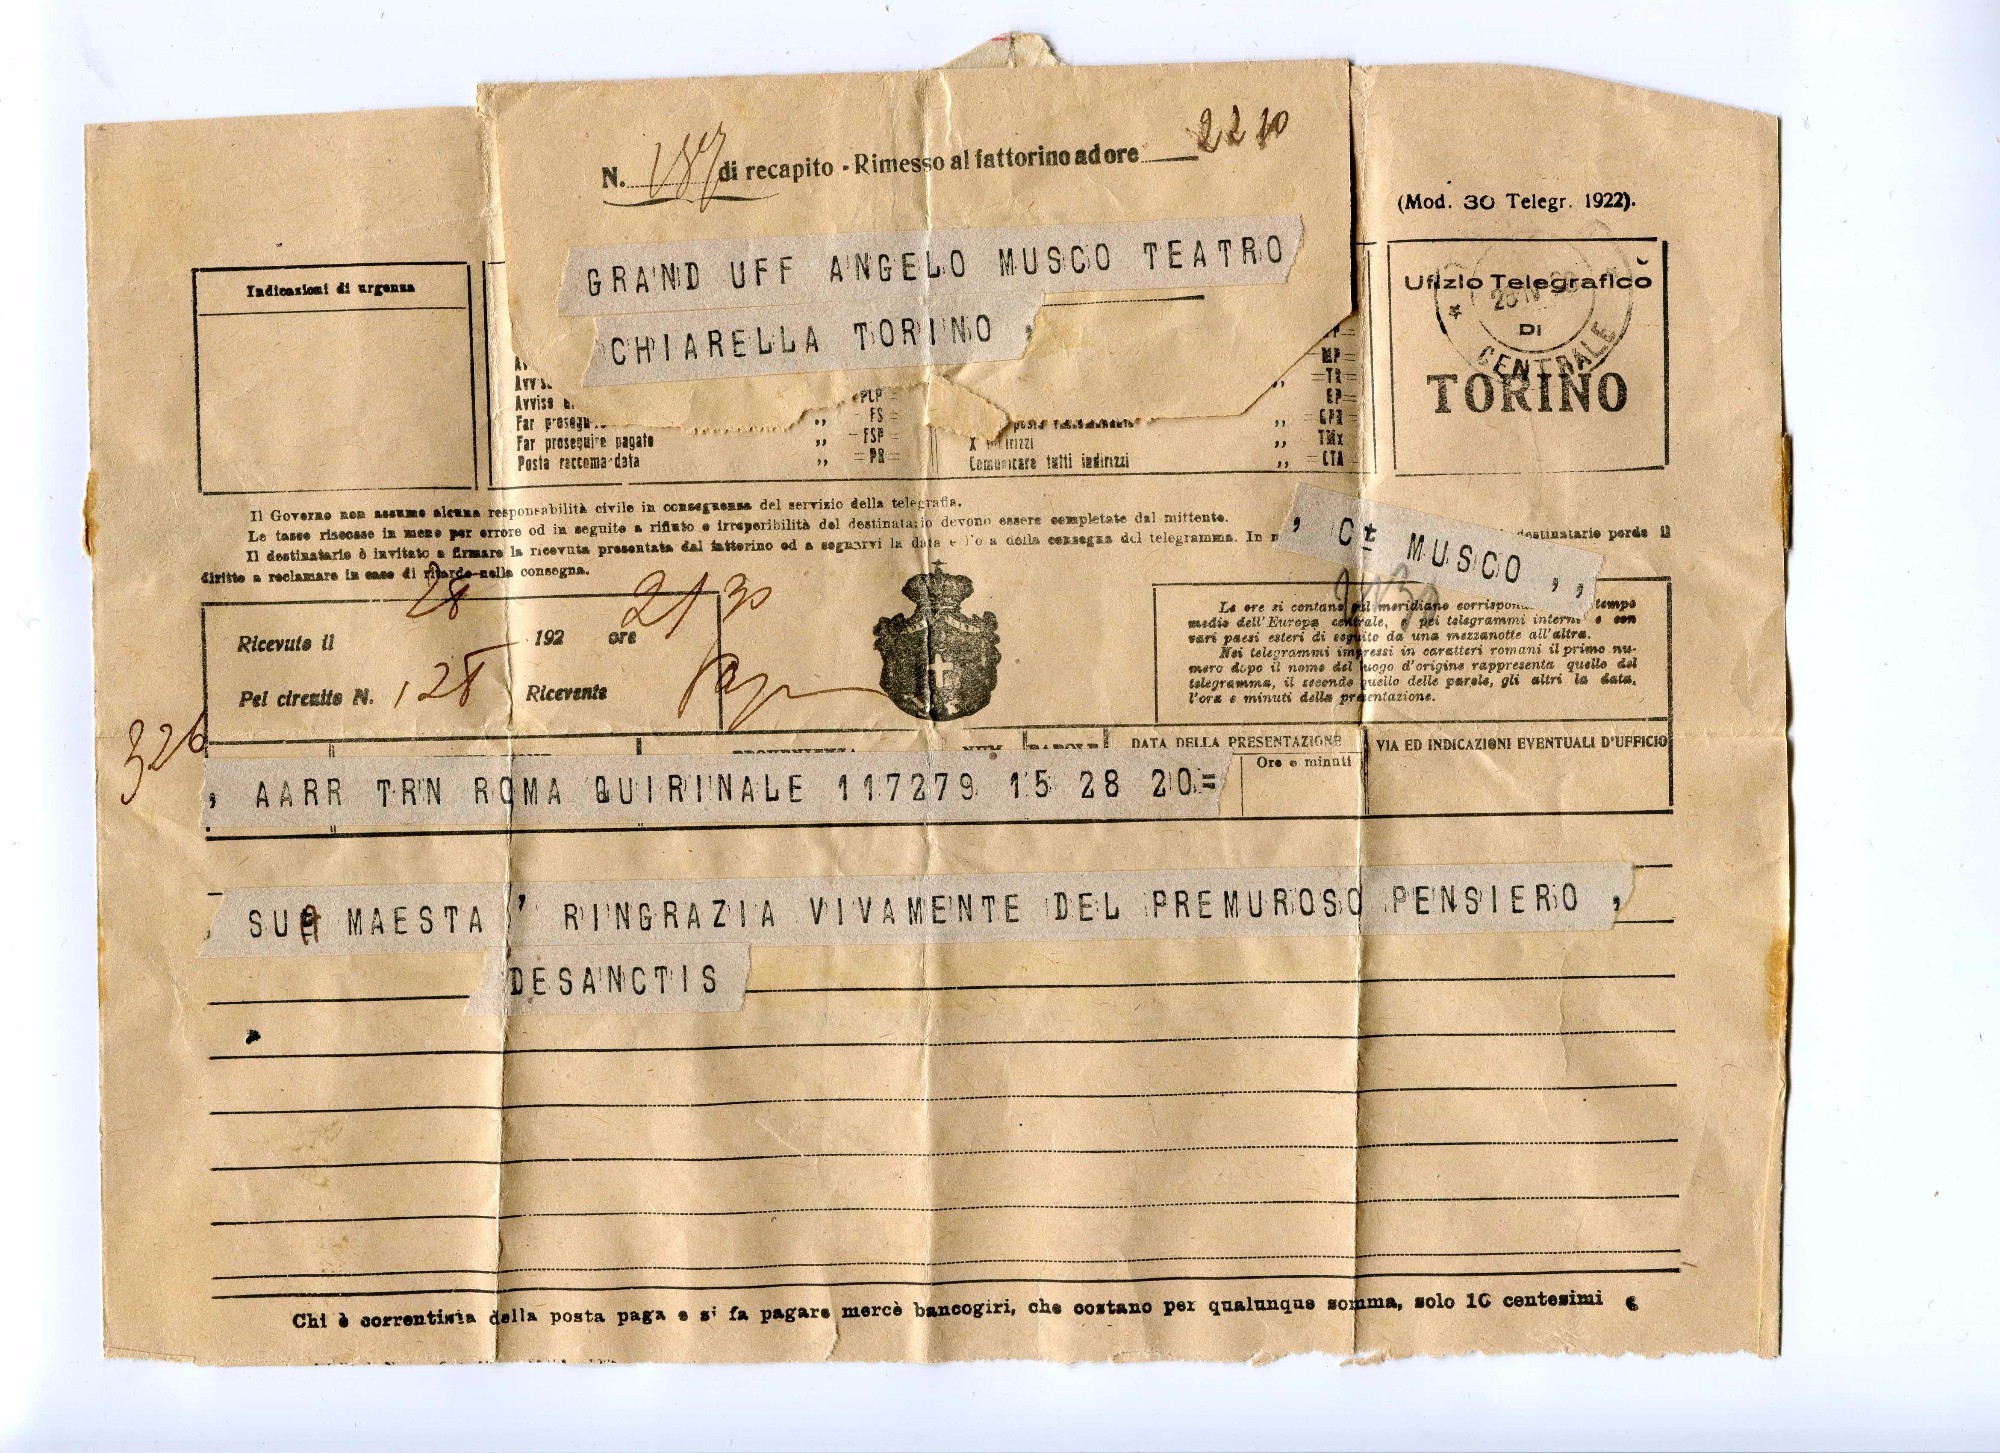 N. 187 di recapito - Rimesso al fattorino ad ore 22 10
(Mod. 30 Telegr. 1922).
GRAND UFF ANGELO MUSCO TEATRO
CHIARELLA TORINO ,
Indicazioni di urgenza
Ufizio Telegrafico
DI
TORINO
CENTRALE
PCP =
FS =
FSP =
PR =
Far proseguire pagato
Posta raccomandata
X indirizzi
Comunicare tutti indirizzi
MP=
TR=
EP=
GPR=
TMx
CTA
Il Governo non assume alcuna responsabilità civile in conseguenza del servizio della telegrafia.
Le tasse riscosse in meno per errore od in seguito a rifiuto o irreperibilità del destinatario devono essere completate dal mittente.
Il destinatario è invitato a firmare la ricevuta presentata dal fattorino ed a segnarvi la data e l'ora della consegna del telegramma. In destinatario perde il
diritto a reclamare in caso di ritardo nella consegna.
, Ct MUSCO , ,
Ricevuto il 28 192 ore 21 30
Pel circuito N. 128 Ricevente
Le ore si contano sul meridiano corrispondente tempo
medio dell'Europa centrale, e pei telegrammi interni e con
vari paesi esteri di seguito da una mezzanotte all'altra.
Nei telegrammi impressi in caratteri romani il primo nu-
mero dopo il nome del luogo d'origine rappresenta quello del
telegramma, il secondo quello delle parole, gli altri la data,
l'ora e minuti della presentazione.
326
PROVENIENZA NUM. PAROLE DATA DELLA PRESENTAZIONE VIA ED INDICAZIONI EVENTUALI D'UFFICIO
Ore e minuti
, AARR TRN ROMA QUIRINALE 117279 15 28 20=
SUA MAESTA ' RINGRAZIA VIVAMENTE DEL PREMUROSO PENSIERO ,
DESANCTIS
Chi è correntista della posta paga e si fa pagare mercè bancogiri, che costano per qualunque somma, solo 10 centesimi